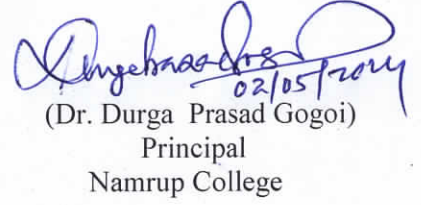 02/05/2024
(Dr. Durga Prasad Gogoi)
Principal
Namrup College